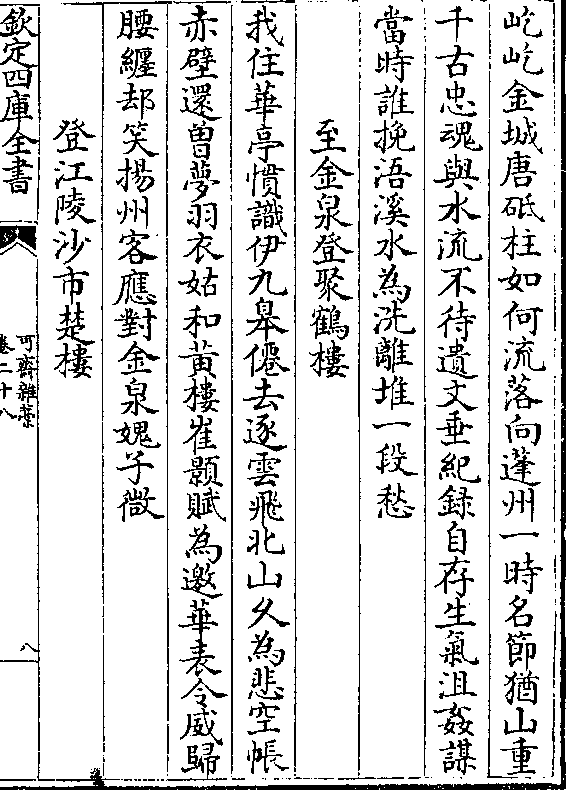 屹屹金城唐砥柱如何流落向蓬州一時名節猶山重
千古忠魂與水流不待遺文垂紀録自存生氣沮姦謀
當時誰挽浯溪水為洗離堆一段愁
至金泉登聚鶴樓
我住華亭慣識伊九臯僊去逐雲飛北山久為悲空帳
赤壁還曽夢羽衣姑和黄樓崔顥賦為邀華表令威歸
腰纏却笑揚州客應對金泉媿子微
登江陵沙市楚樓
欽定四庫全書
可齋雜藁
卷二十八
八